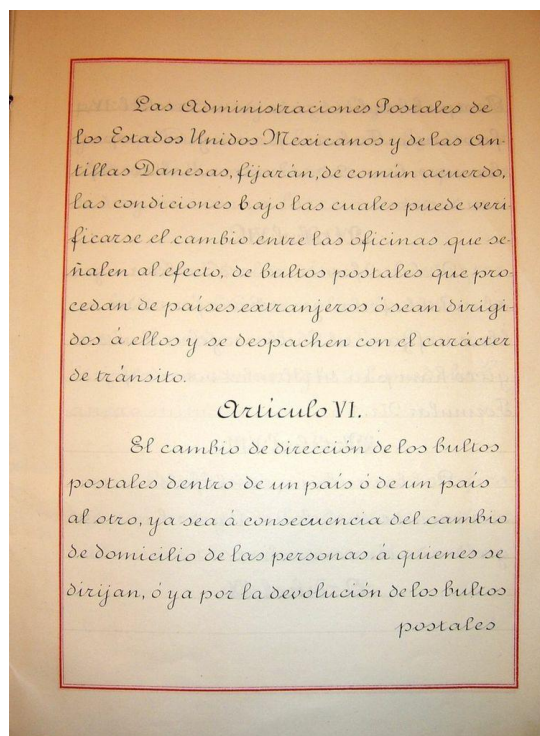 Las Administraciones Postales de
los Estados Unidos Mexicanos y de las An-
tillas Danesas, fijarán, de común acuerdo,
las condiciones bajo las cuales puede veri-
ficarse el cambio entre las oficinas que se-
ñalen al efecto, de bultos postales que pro-
cedan de países extranjeros ó sean dirigi-
dos á ellos y se despachen con el carácter
de tránsito.
Artículo VI.
El cambio de dirección de los bultos
postales dentro de un país ó de un país
al otro, ya sea á consecuencia del cambio
de domicilio de las personas á quienes se
dirijan, ó ya por la devolución de los bultos
postales